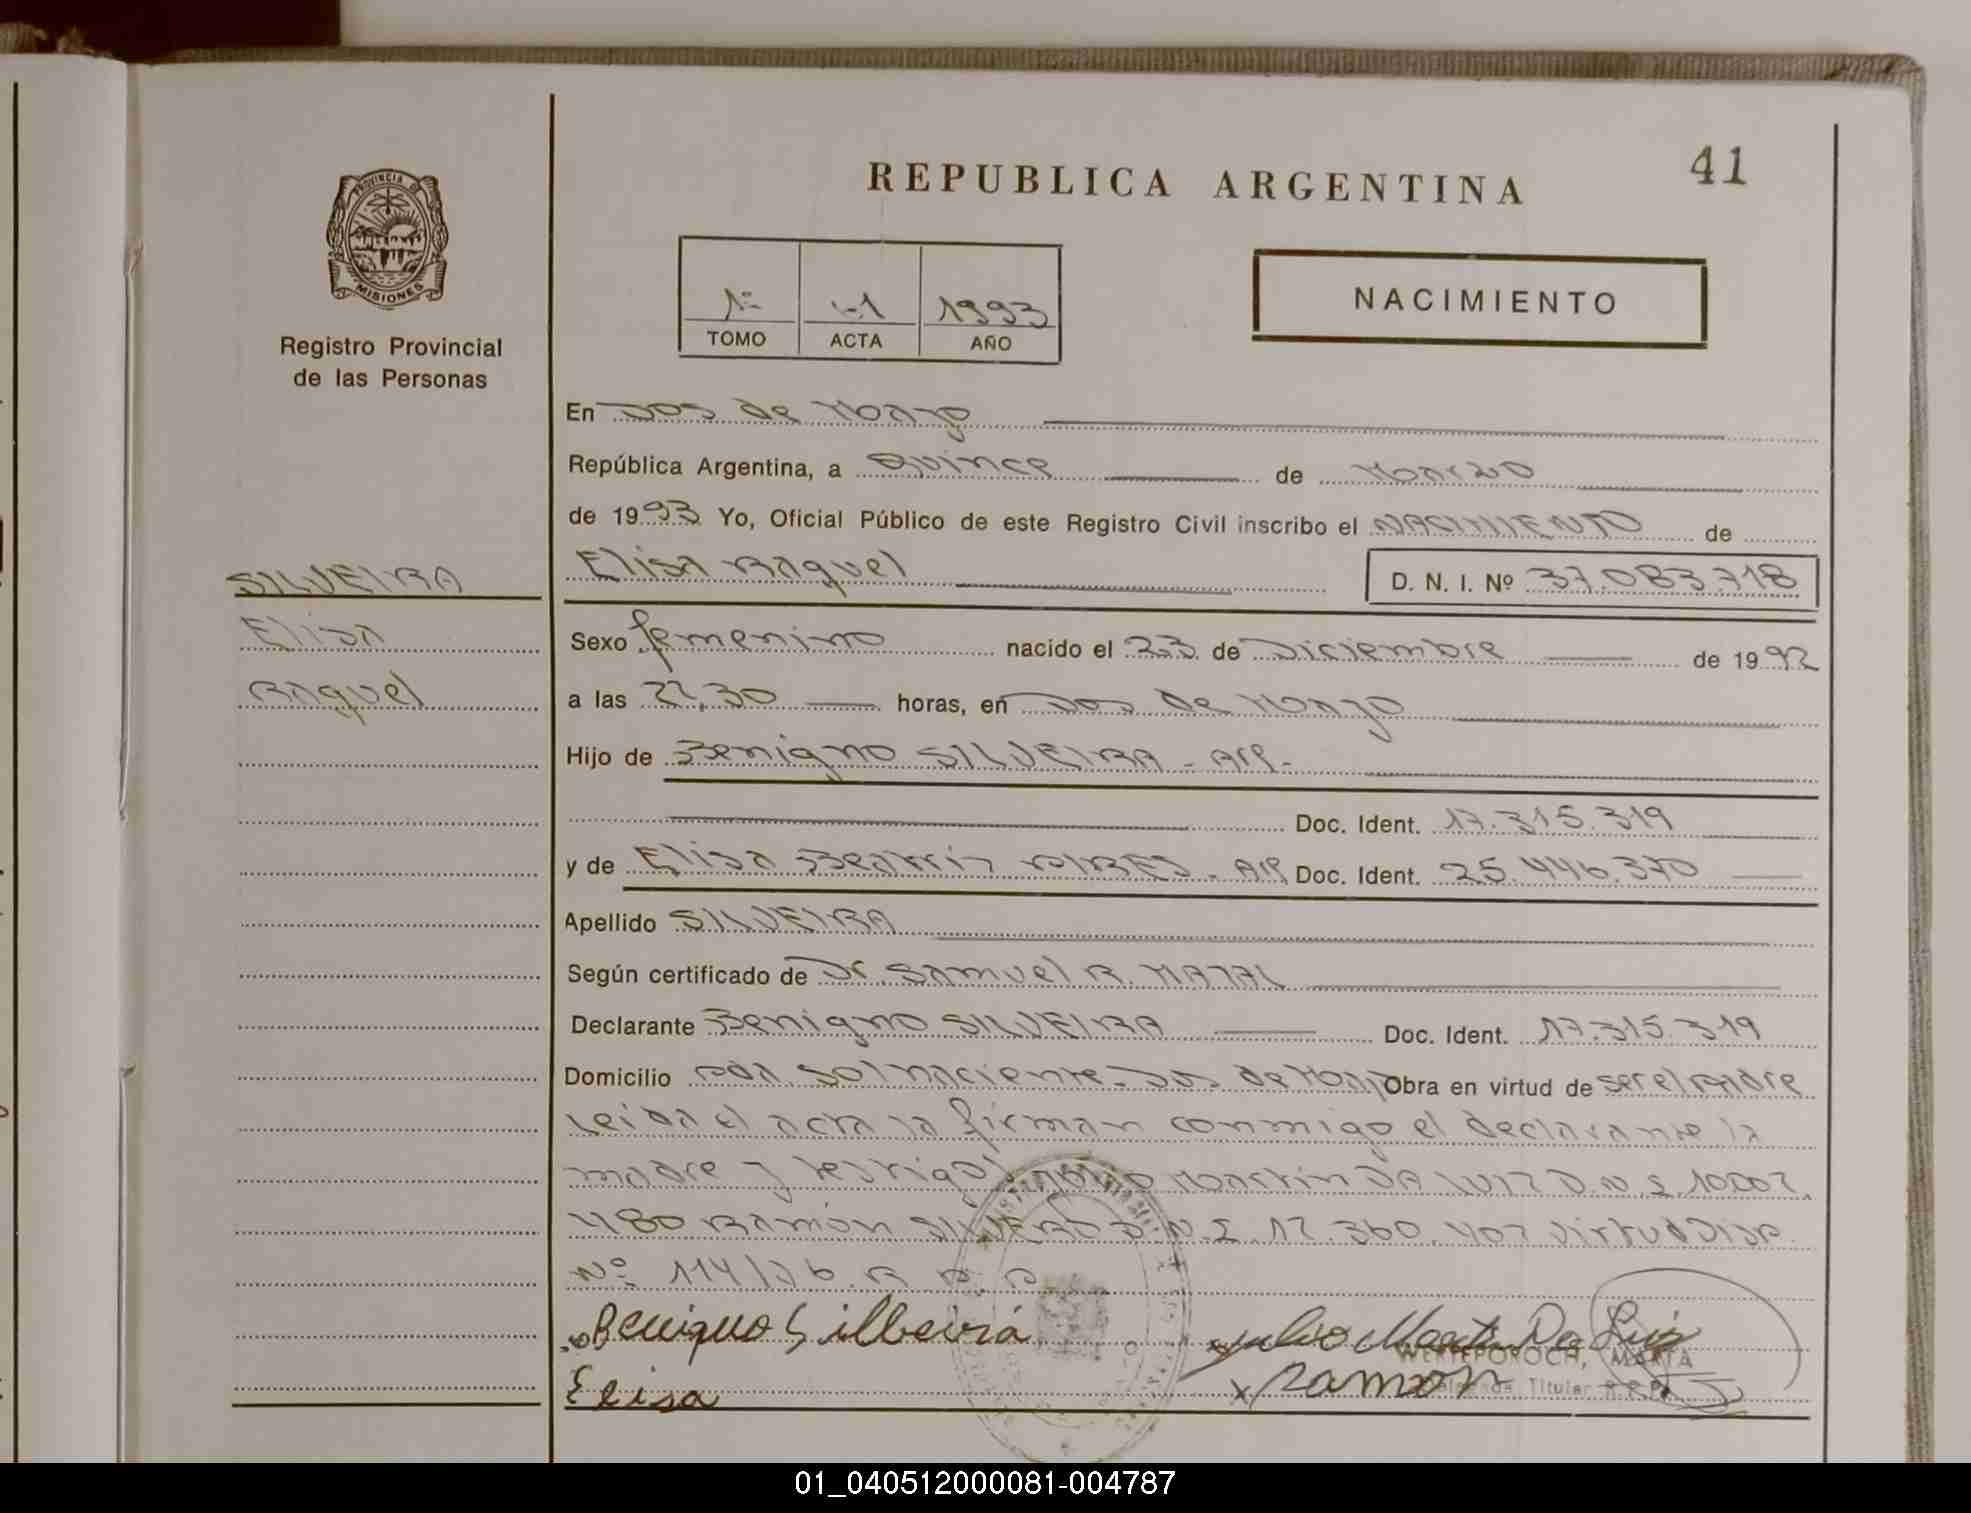 41
REPUBLICA ARGENTINA
PROVINCIA DE
MISIONES
Registro Provincial
de las Personas
1º 41 1993
TOMO ACTA AÑO
NACIMIENTO
En Dos de Mayo
República Argentina, a Quince de Marzo
de 1993 Yo, Oficial Público de este Registro Civil inscribo el NACIMIENTO de
SILVEIRA
Elisa Raquel D. N. I. Nº 37.083.718
Elisa
Sexo femenino nacido el 23 de Diciembre de 1992
Raquel
a las 22,30 horas, en Dos de Mayo
Hijo de Benigno SILVEIRA - Arg.-
Doc. Ident. 17.315.319
y de Elisa Beatriz PIRES - Arg Doc. Ident. 25.446.370
Apellido SILVEIRA
Según certificado de Dr. Samuel R. NATAL
Declarante Benigno SILVEIRA Doc. Ident. 17.315.319
Domicilio Pda. Sol naciente - Dos de Mayo Obra en virtud de ser el padre
Leida el acta la firman conmigo el declarante la
madre y testigos Martin DA LUIZ D.N.I. 10.007.
480 Ramón SILVERO D.N.I. 17.360.407 virtud Disp.
Nº 114/76. R. P. P.
Benigno Silbeira Julio Marti Da Luis
WERTEPOROCH, MARTA
Elisa Ramon Titular R.P.P.
01_040512000081-004787